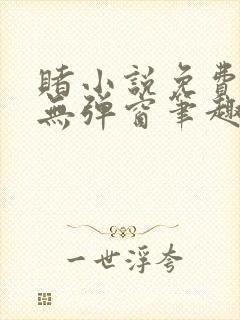 赌小说免费
无弹窗笔趣
一世浮夸